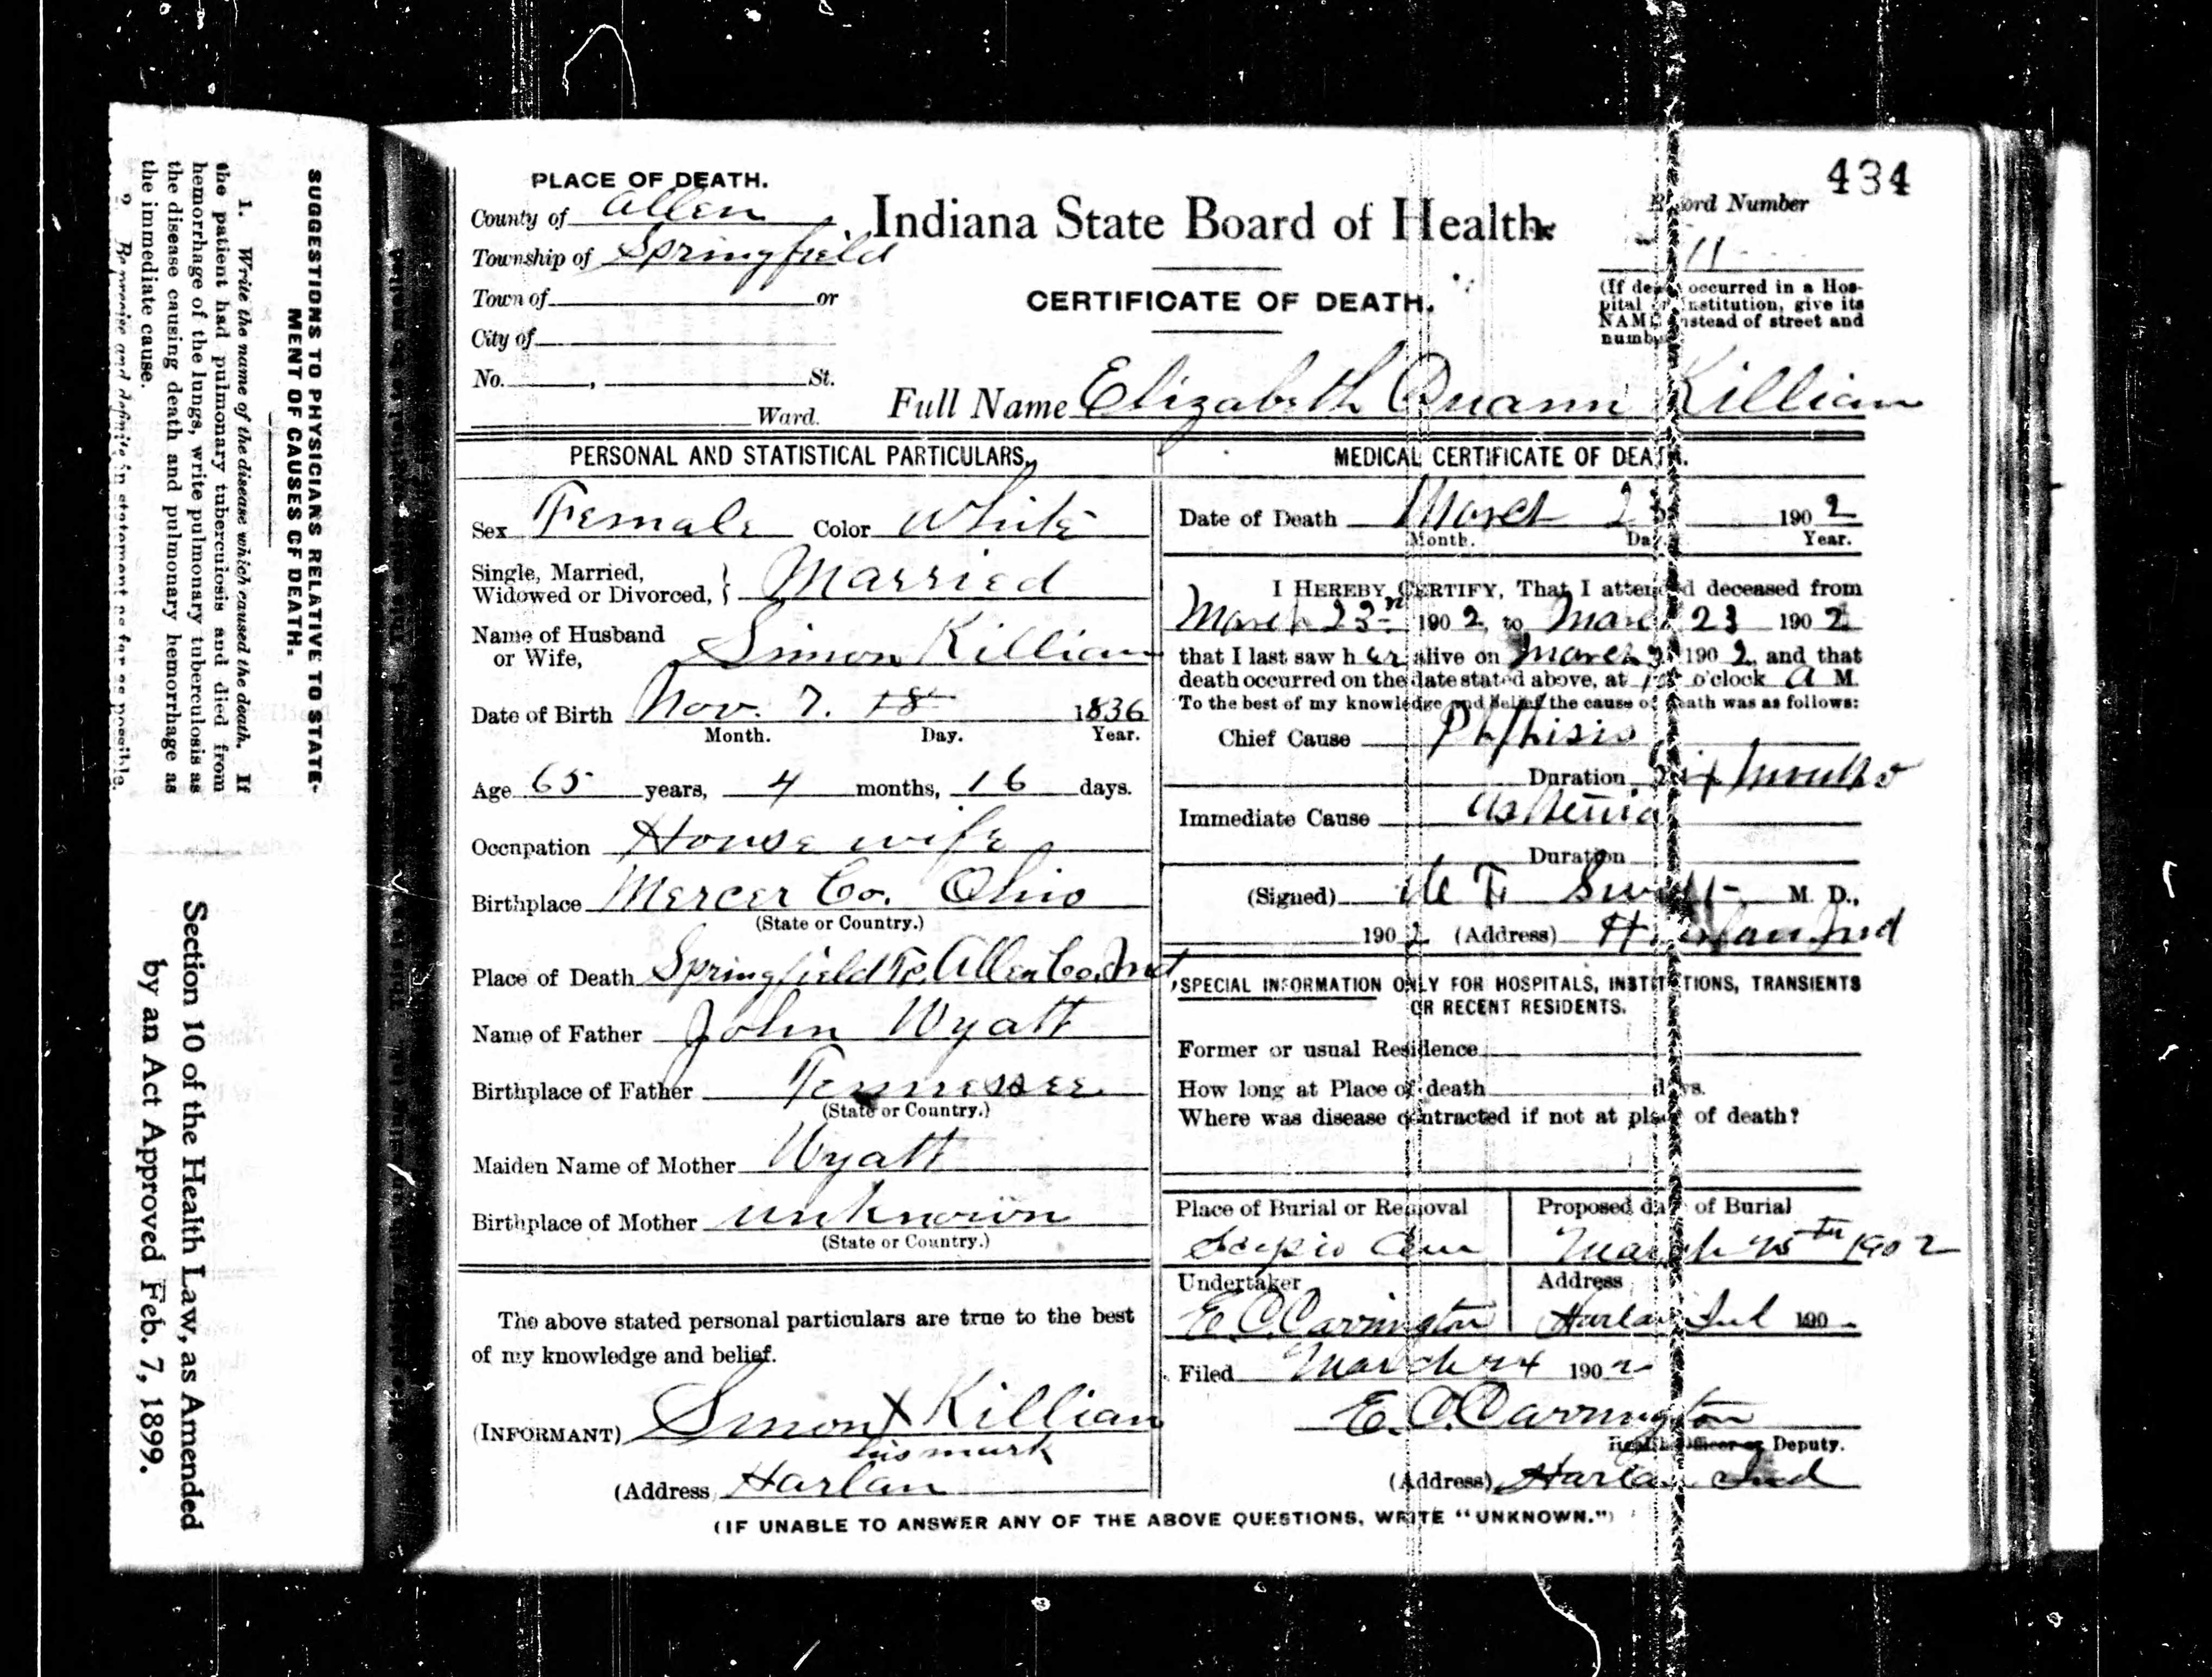 SUGGESTIONS TO PHYSICIANS RELATIVE TO STATE-
MENT OF CAUSES OF DEATH.
1. Write the name of the disease which caused the death. If
the patient had pulmonary tuberculosis and died from
hemorrhage of the lungs, write pulmonary tuberculosis as
the disease causing death and pulmonary hemorrhage as
the immediate cause.
2. Be precise and definite in statement as far as possible.
Section 10 of the Health Law, as Amended
by an Act Approved Feb. 7, 1899.
434
PLACE OF DEATH.
County of Allen
Township of Springfield
Town of or
City of
No. , St.
Ward.
Indiana State Board of Health.
CERTIFICATE OF DEATH.
Record Number
11
(If death occurred in a Hos-
pital or Institution, give its
NAME instead of street and
number
Full Name Elizabeth Quann Killian
PERSONAL AND STATISTICAL PARTICULARS.
Sex Female Color White
Single, Married,
Widowed or Divorced, } Married
Name of Husband
or Wife, Simon Killian
Date of Birth Nov. 7. 18 1836
Month. Day. Year.
Age 65 years, 4 months, 16 days.
Occupation House wife
Birthplace Mercer Co. Ohio
(State or Country.)
Place of Death Springfield Tp. Allen Co. Ind
Name of Father John Wyatt
Birthplace of Father Tennessee
(State or Country.)
Maiden Name of Mother Wyatt
Birthplace of Mother unknown
(State or Country.)
The above stated personal particulars are true to the best
of my knowledge and belief.
(INFORMANT) Simon X Killian
his mark
(Address Harlan
MEDICAL CERTIFICATE OF DEATH.
Date of Death March 23 1902
Month. Day Year.
I HEREBY CERTIFY, That I attended deceased from
March 23rd 1902, to March 23 1902
that I last saw her alive on March 1902, and that
death occurred on the date stated above, at o'clock A M.
To the best of my knowledge and belief the cause of death was as follows:
Chief Cause Phthisis
Duration Six months
Immediate Cause Asthenia
Duration
(Signed) M. D.,
1902 (Address) Harlan Ind
SPECIAL INFORMATION ONLY FOR HOSPITALS, INSTITUTIONS, TRANSIENTS
OR RECENT RESIDENTS.
Former or usual Residence
How long at Place of death days.
Where was disease contracted if not at place of death?
Place of Burial or Removal
Scipio Cem
Proposed day of Burial
March 25th 1902
Undertaker
E. C. Carrington
Address
Harlan Ind 190
Filed March 24 1902
E. C. Carrington
Health Officer or Deputy.
(Address) Harlan Ind
(IF UNABLE TO ANSWER ANY OF THE ABOVE QUESTIONS, WRITE "UNKNOWN.")